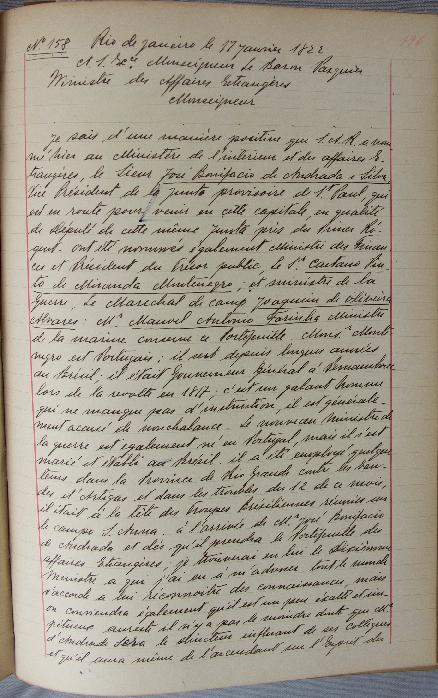 Nº 158 Rio de janeiro le 17 janvier 1822
196
A S. Exce Monseigneur Le Baron Pasquier
Ministre des Affaires Etrangères
Monseigneur
Je sais d'une manière positive que S.A.R. a nom-
mé hier au Ministère de l'intérieur et des affaires E-
trangères, le Sieur José Bonifacio de Andrada e Silva,
Vice Président de la junta provisoire de St Paul, qui
est en route pour venir en cette capitale, en qualité
de député de cette même junte près du Prince Ré-
gent. ont été nommés également Ministre des Finan-
ces et Président du trésor public, le Sr Caetano Pin-
to de Miranda Montenegro; et ministre de la
Guerre, le Marechal de camp Joaquim de Oliveira
Alvares; Mr Manoel Antonio Farinha Ministre
de la marine conserve ce Portefeuille. Monsr Monte-
negro est Portugais; il vint depuis longues années
au Brésil; il était Gouverneur Général à Pernambuco
lors de la revolte en 1817. c'est un galant homme
qui ne manque pas d'instruction, il est générale-
ment accusé de nonchalance. Le nouveau Ministre de
la guerre est également né en Portugal, mais il s'est
marié et établi au Brésil. il a été employé quelque
tems dans la Province de Rio Grande contre les ban-
des d'Artigas et dans les troubles du 12 de ce mois,
il était à la tête des troupes Brésiliennes réunies au
campo S. Anna. à l'arrivée de Mr José Bonifacio
de Andrada et dès qu'il prendra le Portefeuille des
affaires Etrangères, je trouverai en lui le dixième
Ministre a qui j'ai eu à m'adresser tout le monde
s'accorde a lui reconnoitre des connaissances, mais
on conviendra également qu'il est un peu exalté et im-
pétueux aussi il n'y a pas le moindre doute que Mr
d'Andrada sera le directeur influant de ses collègues
et qu'il aura même de l'ascendant sur l'Esprit du